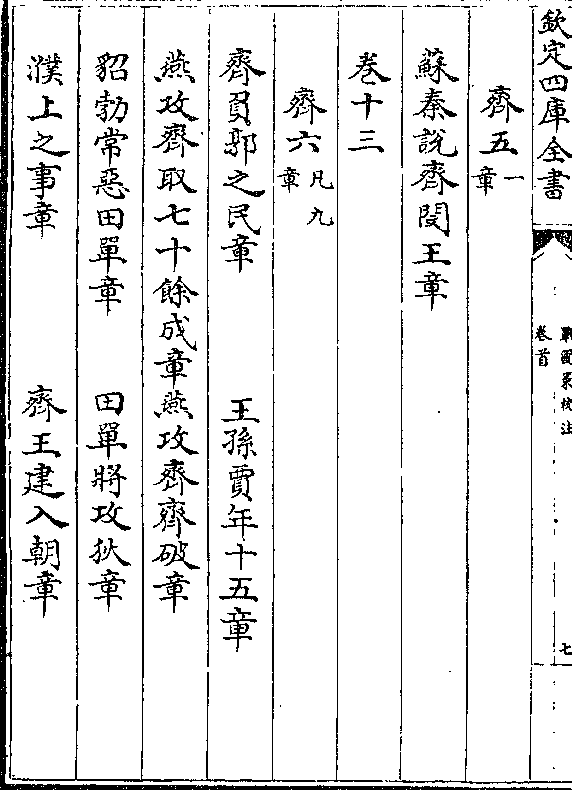 欽定四庫全書
戰國策校注
卷首
七
齊五一章
蘇秦說齊閔王章
卷十三
齊六凡九章
齊負郭之民章 王孫賈年十五章
燕攻齊取七十餘成章 燕攻齊齊破章
貂勃常惡田單章 田單將攻狄章
濮上之事章 齊王建入朝章